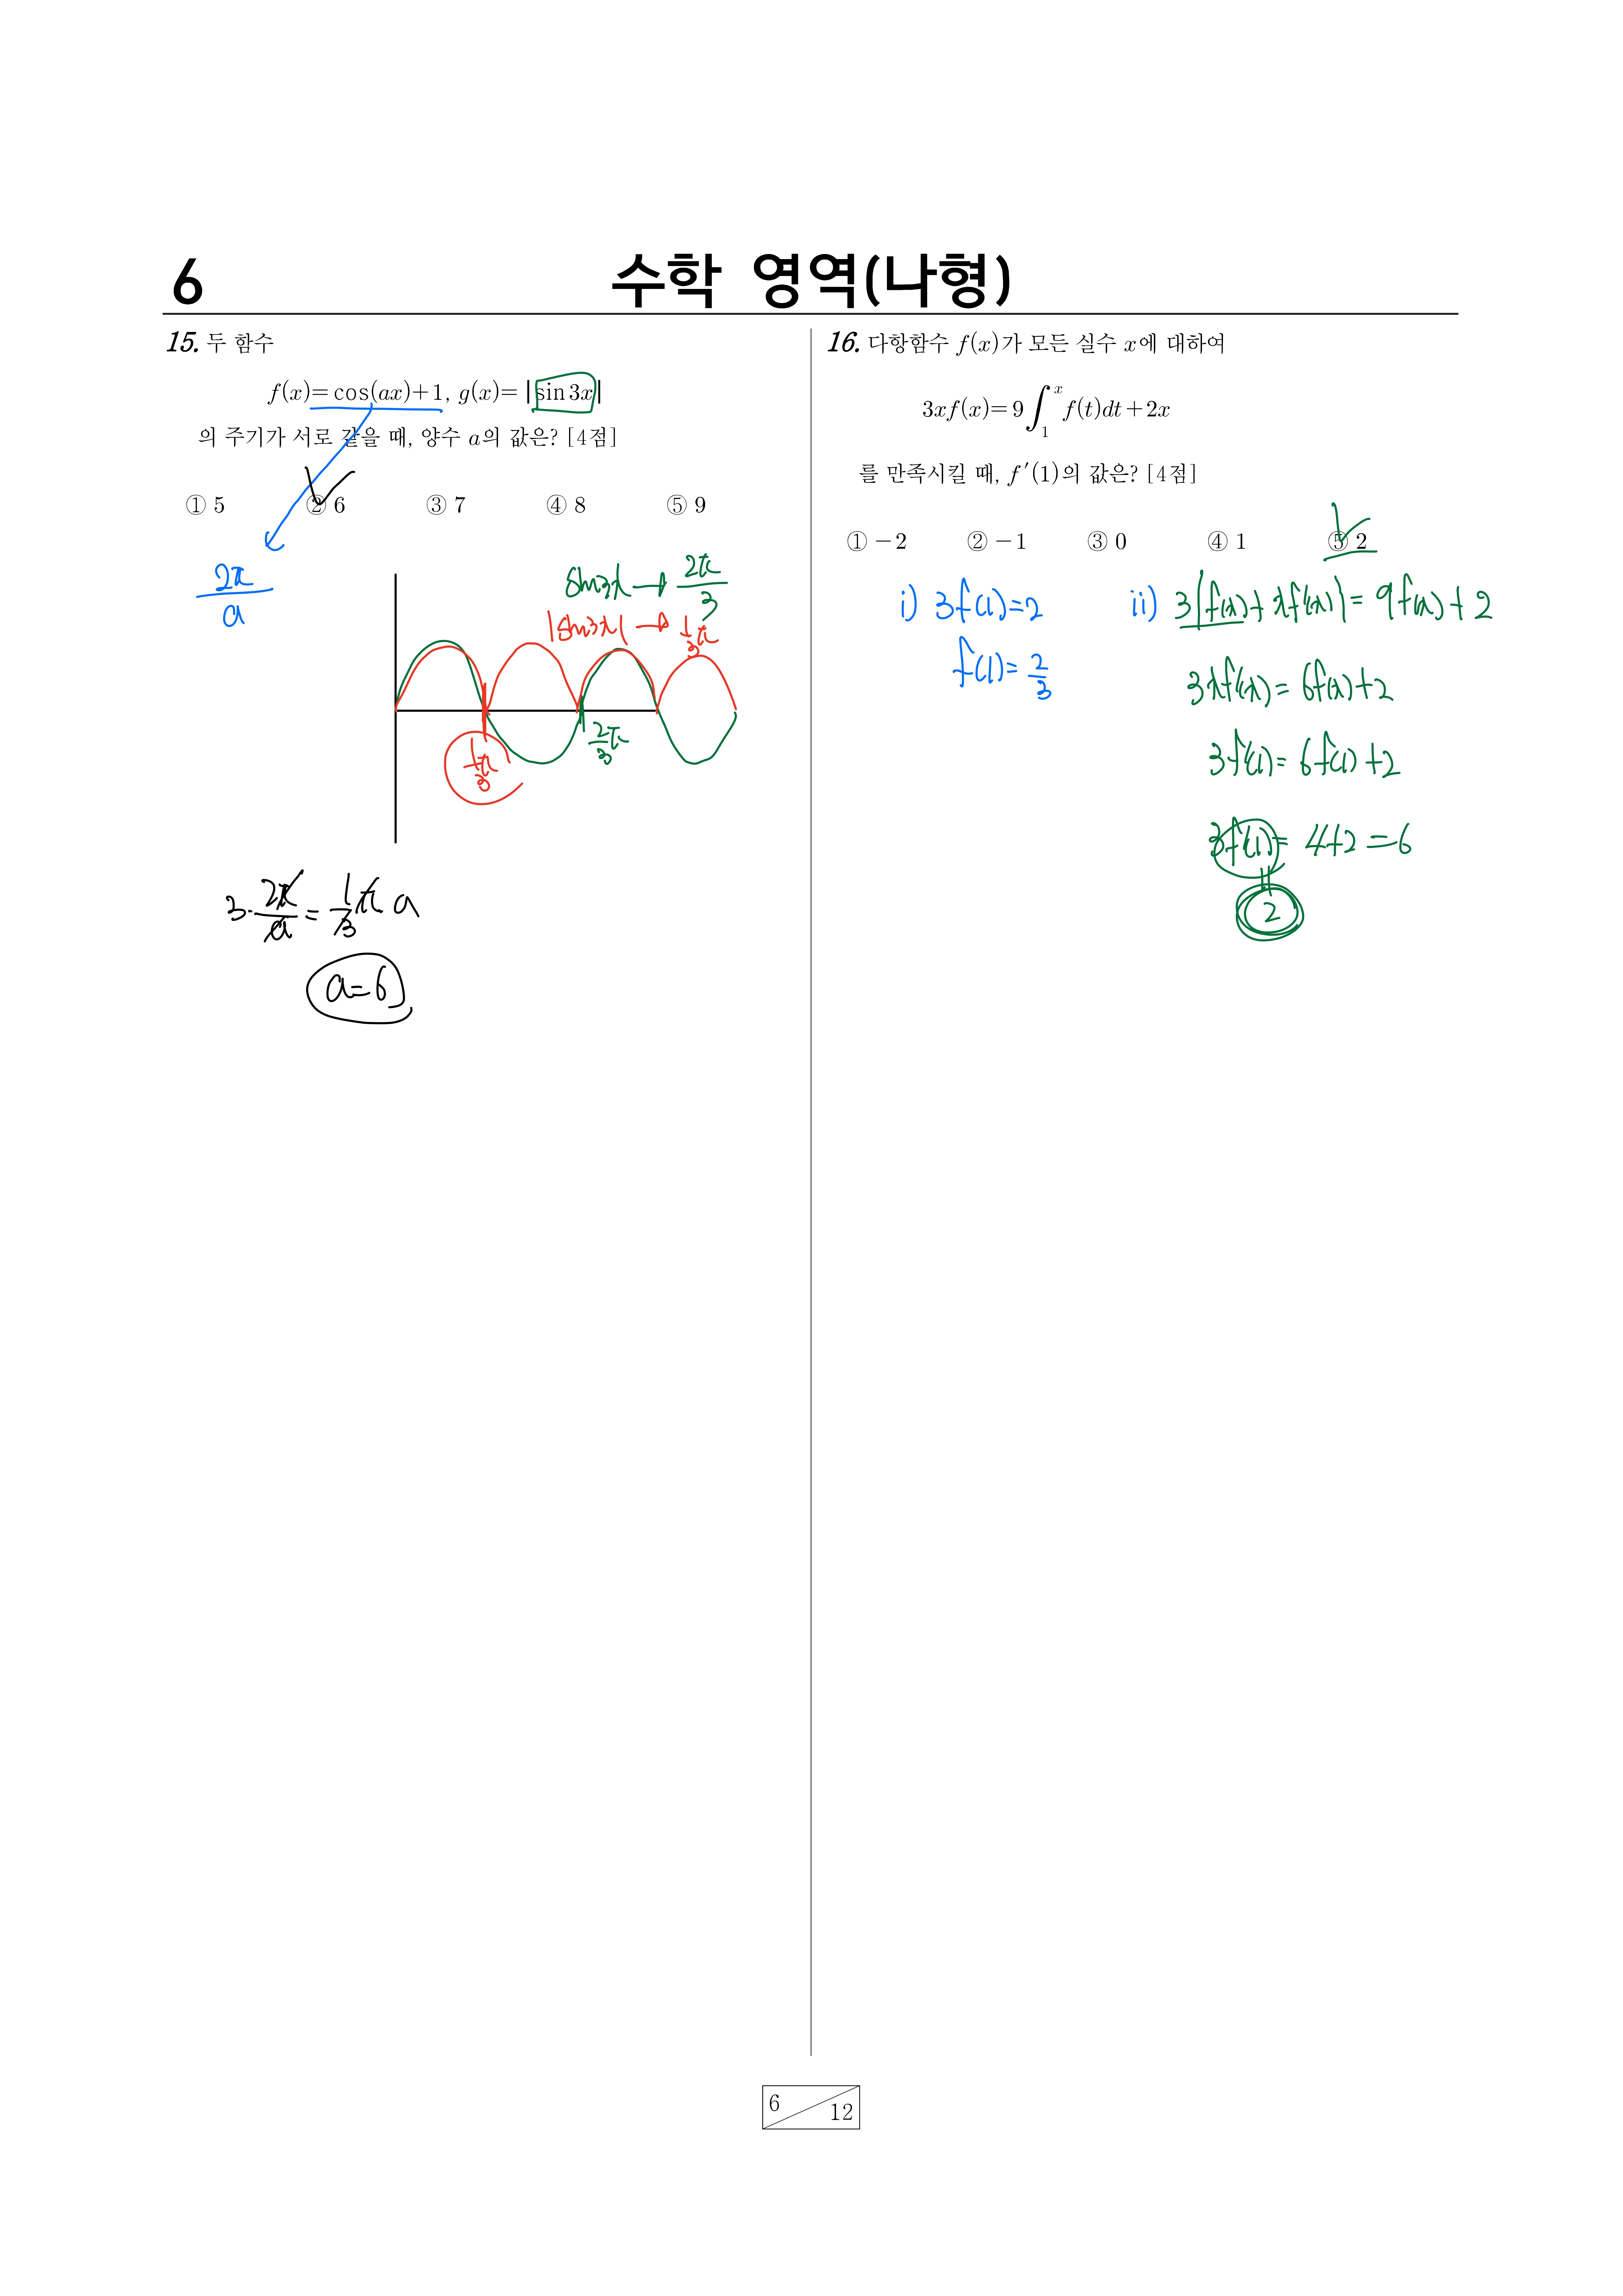 6
수학 영역(나형)
15. 두 함수
f(x)=cos(ax)+1, g(x)=|sin3x|
의 주기가 서로 같을 때, 양수 a의 값은? [4점]
① 5 ② 6 ③ 7 ④ 8 ⑤ 9
2π/a
sin3x → 2π/3
|sin3x| → 1/3π
2/3π
1/3π
3·2π/a = 1/3π a
a=6
16. 다항함수 f(x)가 모든 실수 x에 대하여
3xf(x)=9∫₁ˣf(t)dt+2x
를 만족시킬 때, f′(1)의 값은? [4점]
① −2 ② −1 ③ 0 ④ 1 ⑤ 2
i) 3f(1)=2
f(1)=2/3
ii) 3{f(x)+xf′(x)}=9f(x)+2
3xf′(x)=6f(x)+2
3f′(1)=6f(1)+2
3f′(1)=4+2=6
2
6 12